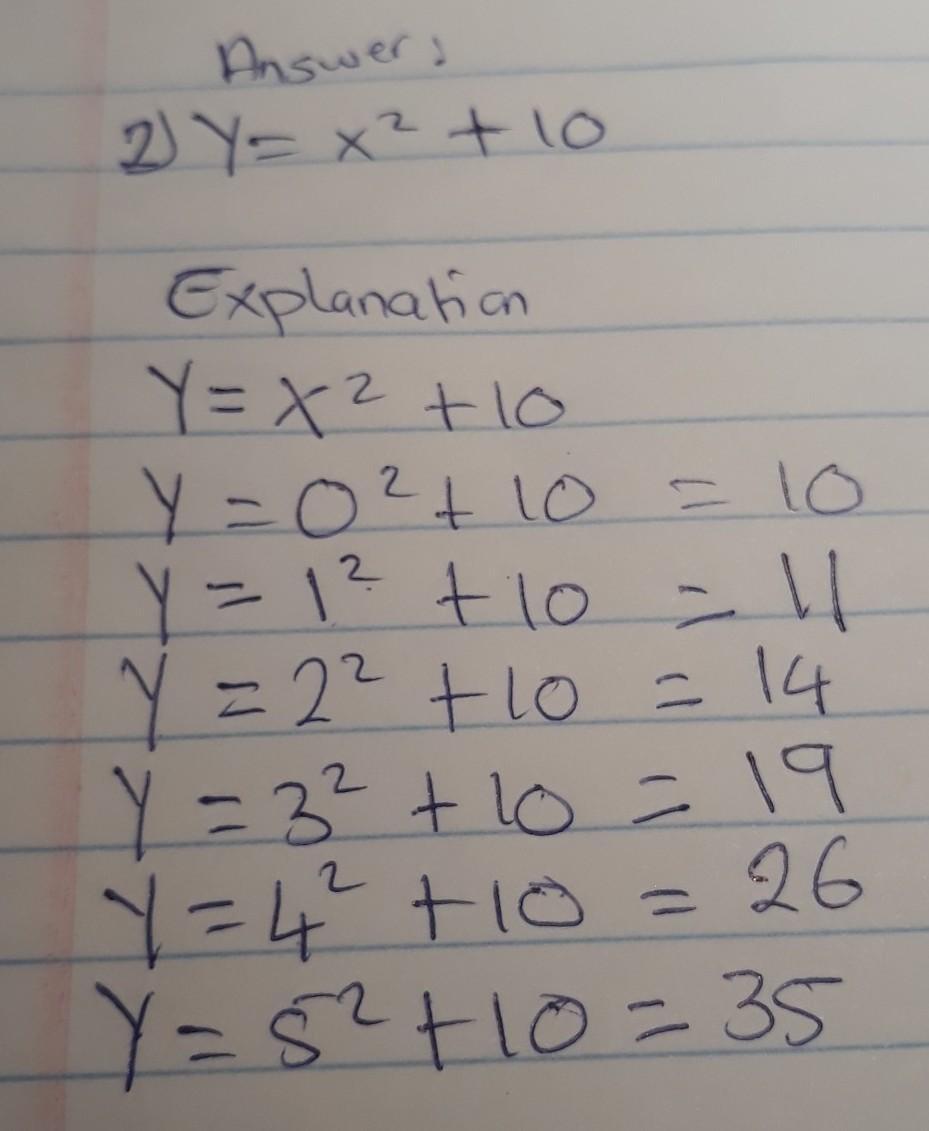 Answer:
2) Y = x² + 10
Explanation
Y = x² + 10
Y = 0² + 10 = 10
Y = 1² + 10 = 11
Y = 2² + 10 = 14
Y = 3² + 10 = 19
Y = 4² + 10 = 26
Y = 5² + 10 = 35